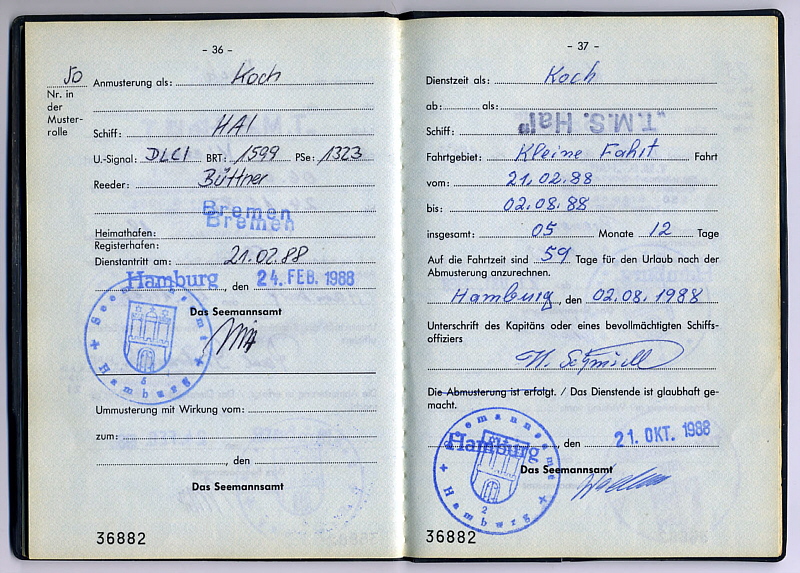 - 36 -
50 Anmusterung als: Koch
Nr. in
der
Muster-
rolle
Schiff: HAI
U.-Signal: DLCI BRT: 1599 PSe: 1323
Reeder: Büttner
Bremen
Bremen
Heimathafen:
Registerhafen:
Dienstantritt am: 21.02.88
Hamburg, den 24. FEB. 1988
Das Seemannsamt
Seemannsamt
Hamburg
Ummusterung mit Wirkung vom:
zum:
, den
Das Seemannsamt
36882
- 37 -
Dienstzeit als: Koch
ab: als:
Schiff: „T.M.S. Hai"
Fahrtgebiet: Kleine Fahrt Fahrt
vom: 21.02.88
bis: 02.08.88
insgesamt: 05 Monate 12 Tage
Auf die Fahrtzeit sind 59 Tage für den Urlaub nach der
Abmusterung anzurechnen.
Hamburg, den 02.08.1988
Unterschrift des Kapitäns oder eines bevollmächtigten Schiffs-
offiziers
Die Abmusterung ist erfolgt. / Das Dienstende ist glaubhaft ge-
macht.
Hamburg, den 21. OKT. 1988
Das Seemannsamt
Seemannsamt
2
Hamburg
36882